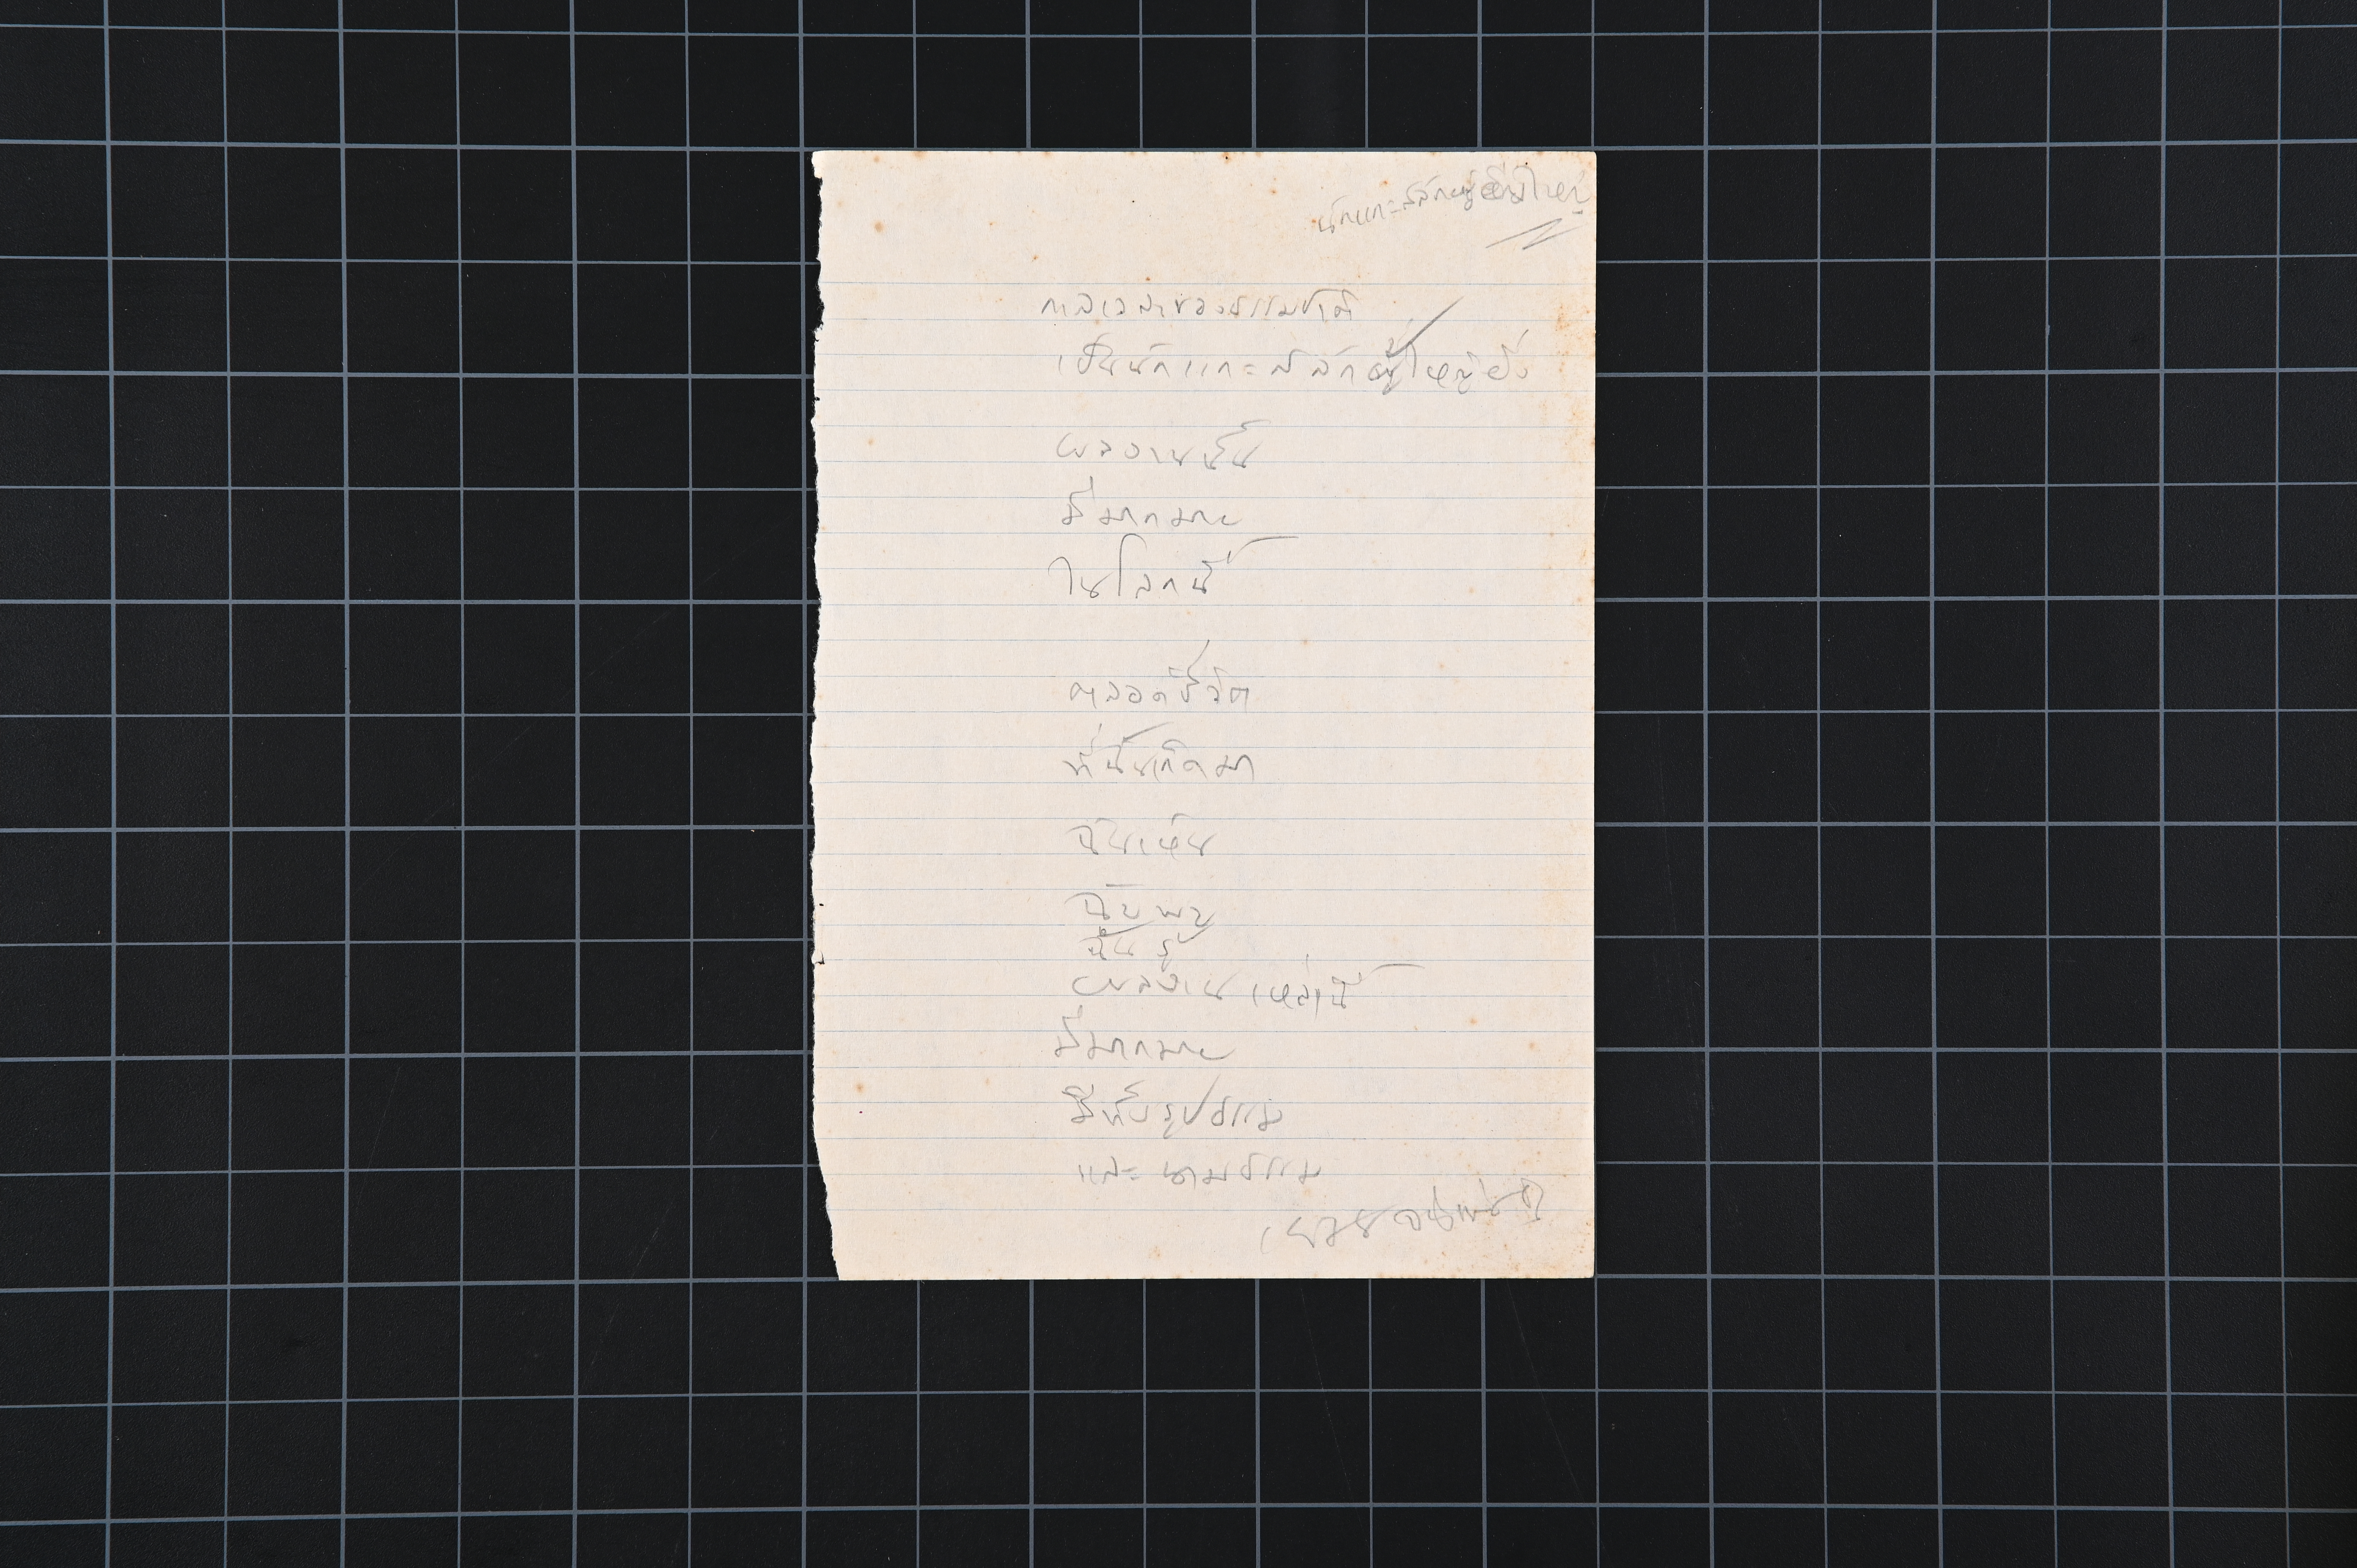 นักแกะสลักผู้ยิ่งใหญ่
กาลเวลาของธรรมชาติ
เป็นนักแกะสลักผู้ใหญ่ยิ่ง
ผลงานนั้น
มีมากมาย
ในโลกนี้
ตลอดชีวิต
ที่ฉันเกิดมา
ฉันเห็น
ฉันพบ
ฉันรู้
ผลงานเหล่านี้
มีมากมาย
มีทั้งรูปธรรม
และนามธรรม